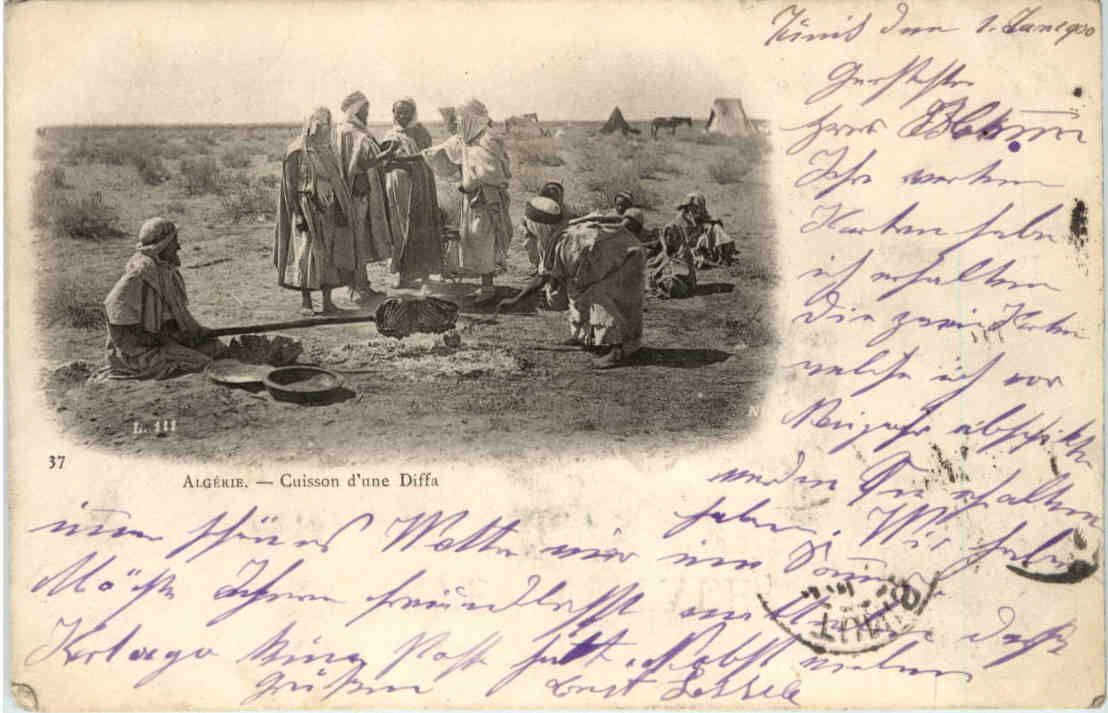 Tunis den 1. Jan. 1900
Geehrtester
Herr
Ihre werten
Karten habe
ich erhalten
Die zwei Karten
welche ich vor
Neujahr abschickte
werden Sie erhalten
haben. Wir haben
immer schönes Wetter wie im
Möchte Ihnen freundlichst mitteilen dass
Karthago keine Post hat. Nebst vielen
Grüßen Ernst
L. 111
37
ALGÉRIE. — Cuisson d'une Diffa